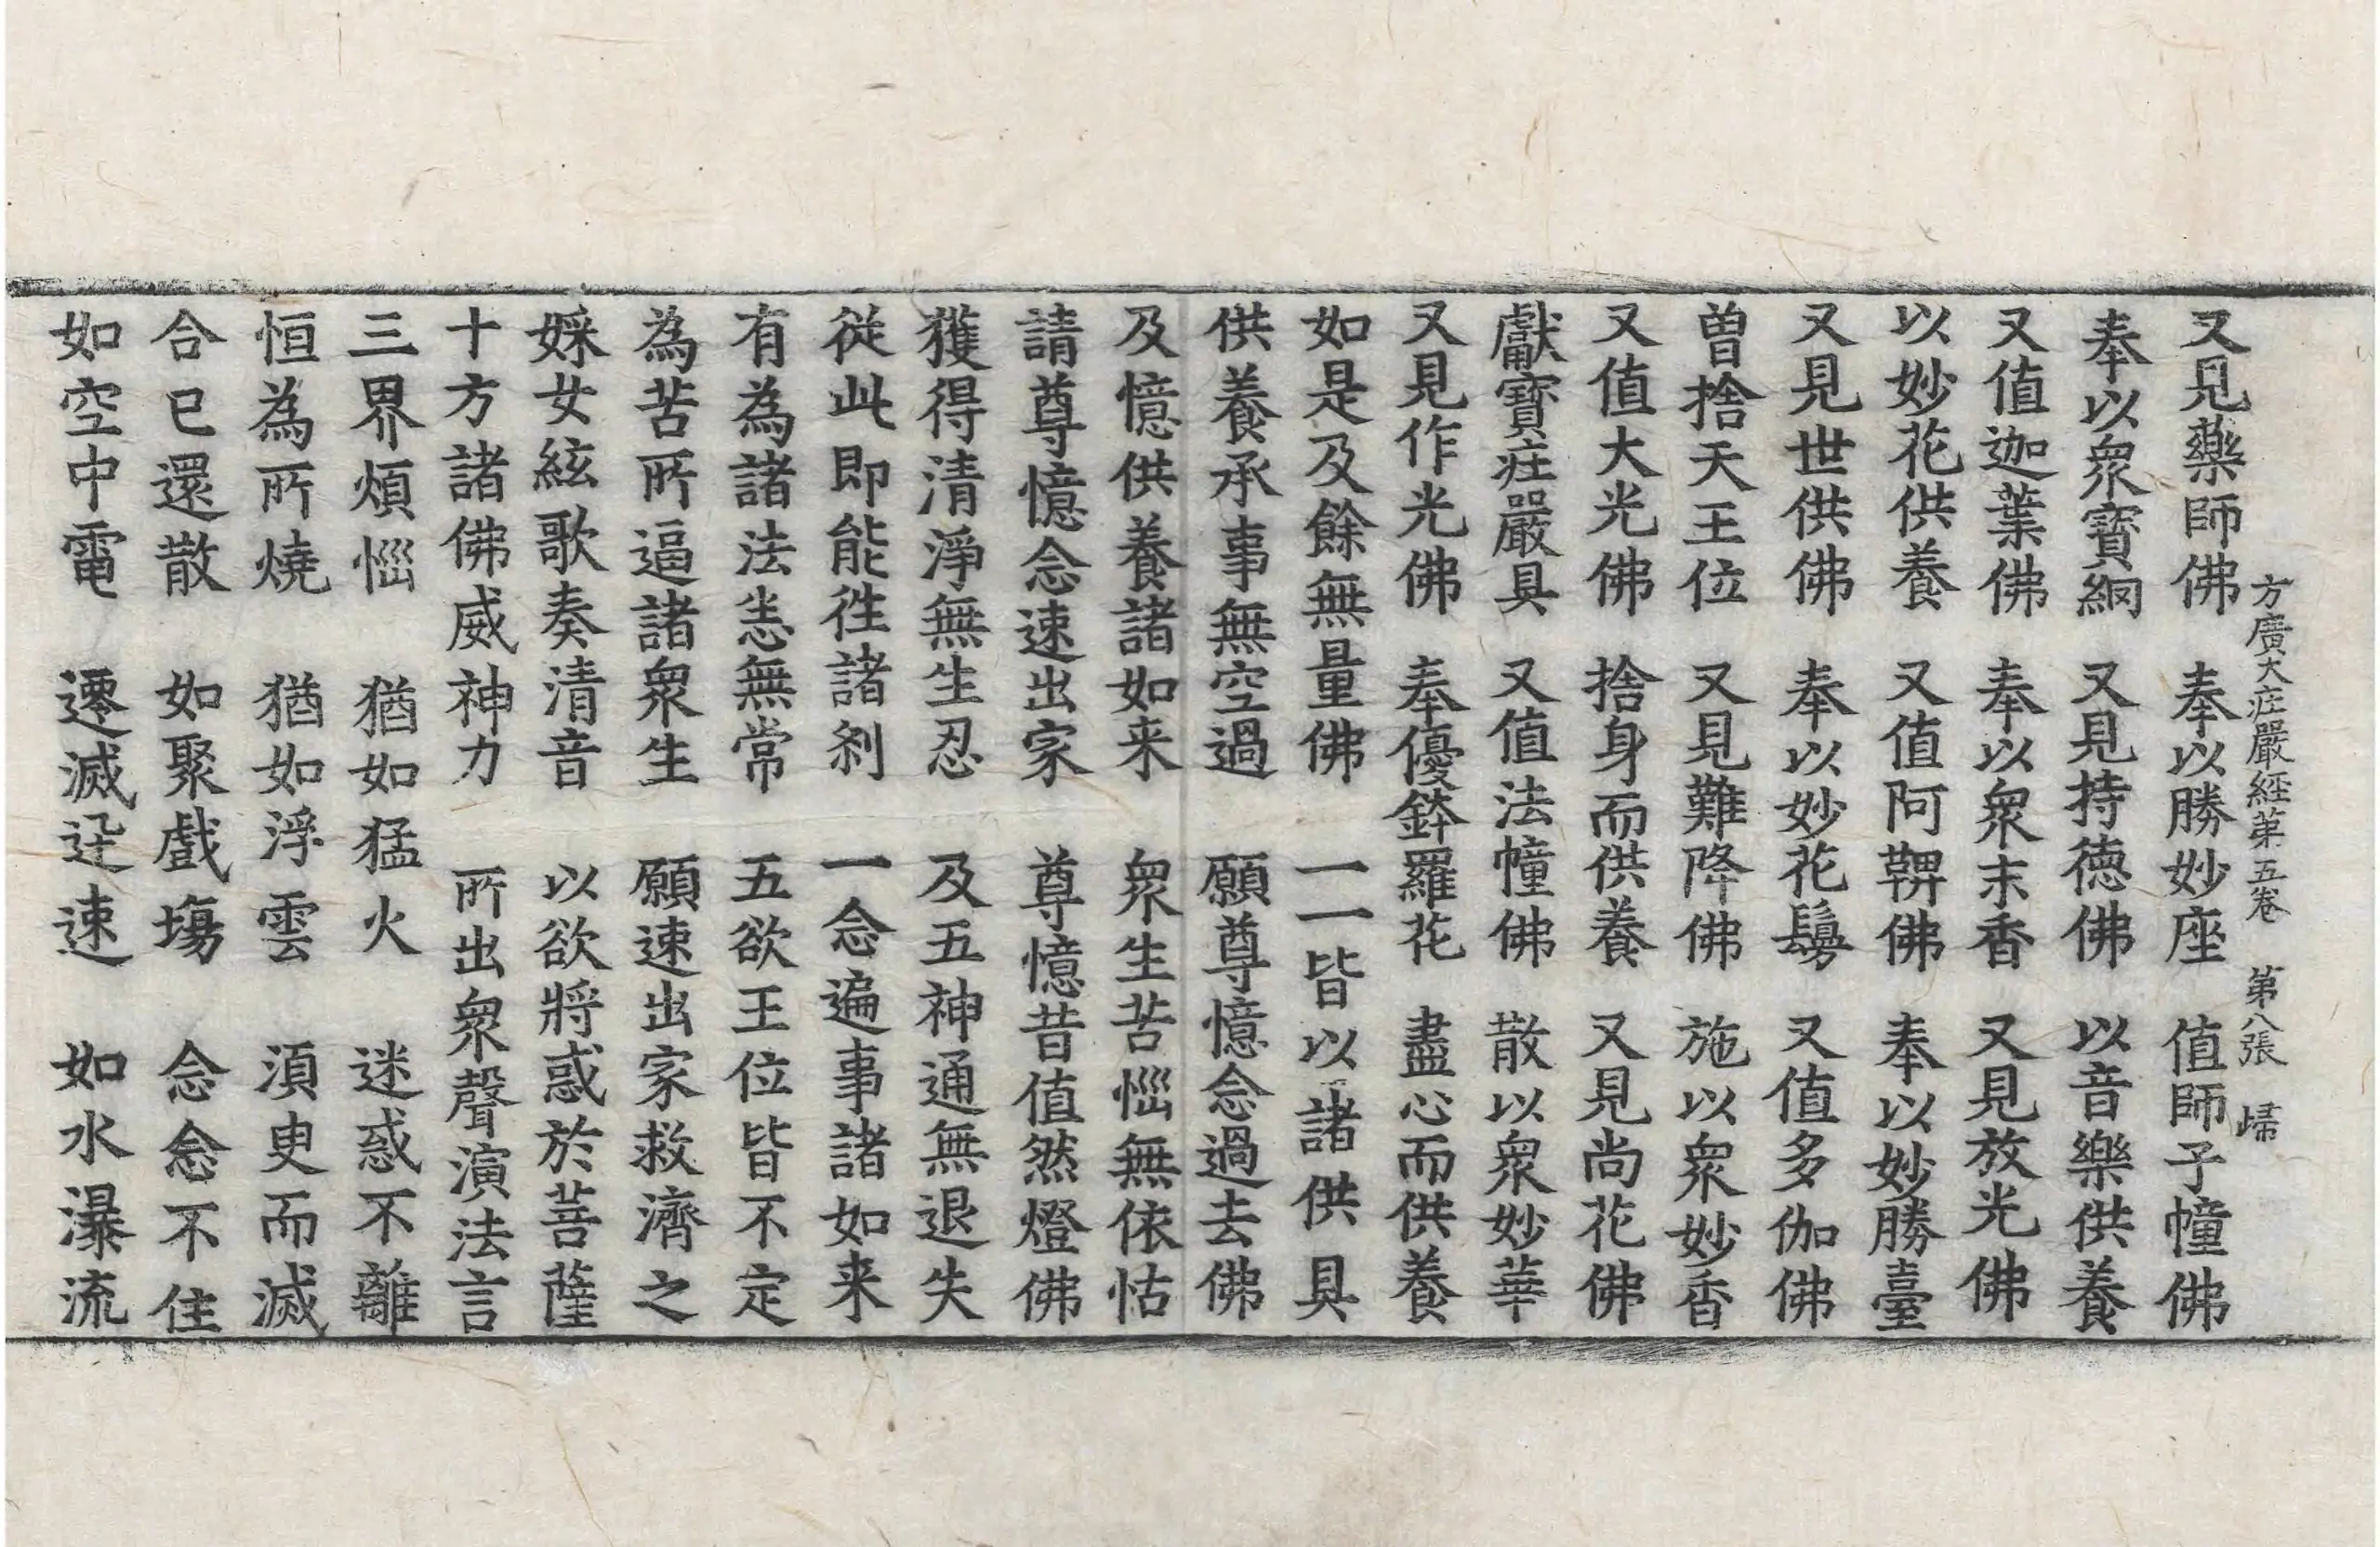 方廣大庄嚴經第五卷　第八張　歸
又見藥師佛　奉以勝妙座　值師子幢佛
奉以衆寶網　又見持德佛　以音樂供養
又值迦葉佛　奉以衆末香　又見放光佛
以妙花供養　又值阿鞞佛　奉以妙勝臺
又見世供佛　奉以妙花鬘　又值多伽佛
曽捨天王位　又見難降佛　施以衆妙香
又值大光佛　捨身而供養　又見尚花佛
獻寶庄嚴具　又值法幢佛　散以衆妙華
又見作光佛　奉優鉢羅花　盡心而供養
如是及餘無量佛　一一皆以諸供具
供養承事無空過　願尊憶念過去佛
及憶供養諸如来　衆生苦惱無依怙
請尊憶念速出家　尊憶昔值然燈佛
獲得清淨無生忍　及五神通無退失
從此即能徃諸刹　一念遍事諸如来
有為諸法悉無常　五欲王位皆不定
為苦所逼諸衆生　願速出家救濟之
婇女絃歌奏清音　以欲將惑於菩薩
十方諸佛威神力　所出衆聲演法言
三界煩惱　猶如猛火　迷惑不離
恒為所燒　猶如浮雲　須臾而滅
合已還散　如聚戲場　念念不住
如空中電　遷滅迅速　如水瀑流